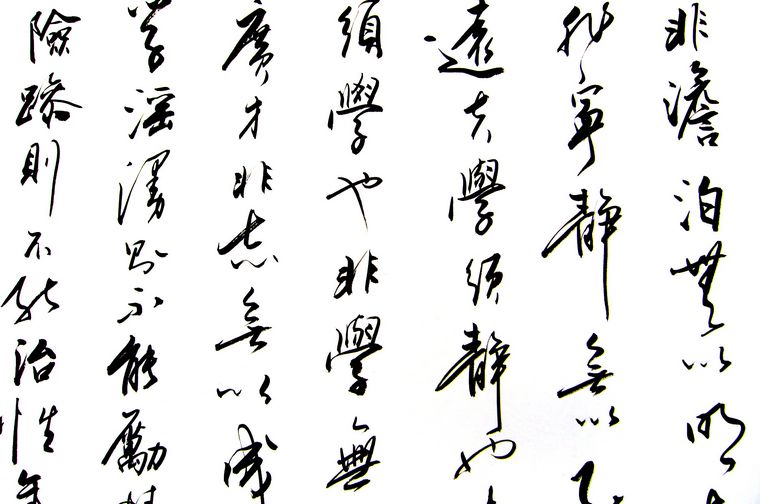 非澹泊無以明
非寧靜無以
遠夫學須靜也
須學也非學無
廣才非志無以成
学滛漫則不能勵
險躁則不能治性年